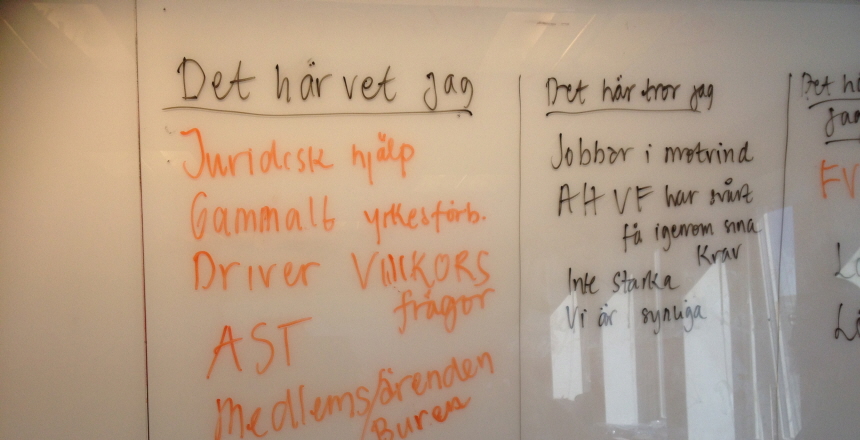 Det här vet jag
Juridisk hjälp
Gammalt yrkesförb.
Driver VILLKORS
frågor
AST
Medlemsärenden
Det här tror jag
Jobbar i motvind
Att VF har svårt
få igenom sina
Krav
Inte starka
Vi är synliga
Det hä
jag
FV